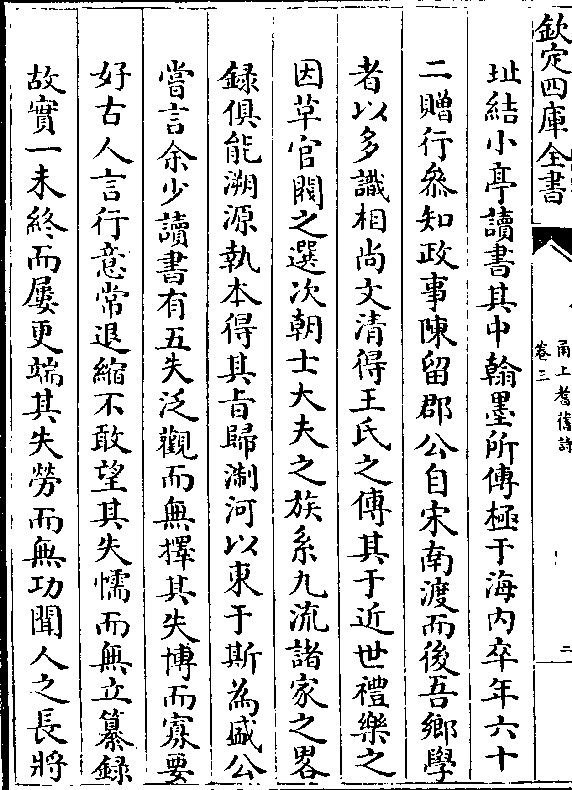 欽定四庫全書
甬上耆舊詩
卷三
二
址結小亭讀書其中翰墨所傳極于海内卒年六十
二贈行叅知政事陳留郡公自宋南渡而後吾鄉學
者以多識相尚文清得王氏之傳其于近世禮樂之
因草官閥之選次朝士大夫之族系九流諸家之畧
録俱能溯源執本得其㫖歸淛河以東于斯為盛公
嘗言余少讀書有五失泛觀而無擇其失博而寡要
好古人言行意常退縮不敢望其失懦而無立纂録
故實一未終而屢更端其失勞而無功聞人之長將